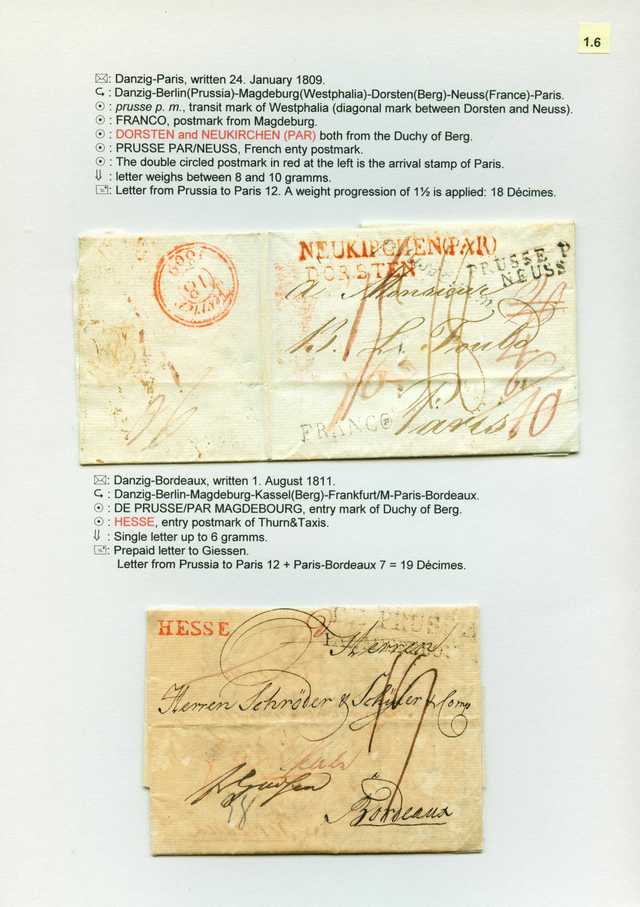 1.6
✉: Danzig-Paris, written 24. January 1809.
: Danzig-Berlin(Prussia)-Magdeburg(Westphalia)-Dorsten(Berg)-Neuss(France)-Paris.
: prusse p. m., transit mark of Westphalia (diagonal mark between Dorsten and Neuss).
: FRANCO, postmark from Magdeburg.
: DORSTEN and NEUKIRCHEN (PAR) both from the Duchy of Berg.
: PRUSSE PAR/NEUSS, French enty postmark.
: The double circled postmark in red at the left is the arrival stamp of Paris.
⇓ : letter weighs between 8 and 10 gramms.
: Letter from Prussia to Paris 12. A weight progression of 1½ is applied: 18 Décimes.
NEUKIRCHEN(PAR)
DORSTEN
PRUSSE P
NEUSS
1809
18
a Monsieur
FRANCO
Paris
✉: Danzig-Bordeaux, written 1. August 1811.
: Danzig-Berlin-Magdeburg-Kassel(Berg)-Frankfurt/M-Paris-Bordeaux.
: DE PRUSSE/PAR MAGDEBOURG, entry mark of Duchy of Berg.
: HESSE, entry postmark of Thurn&Taxis.
⇓ : Single letter up to 6 gramms.
: Prepaid letter to Giessen.
Letter from Prussia to Paris 12 + Paris-Bordeaux 7 = 19 Décimes.
HESSE
PRUSSE
Herren
Herren Schröder & Schÿler & Comp
19
Bordeaux